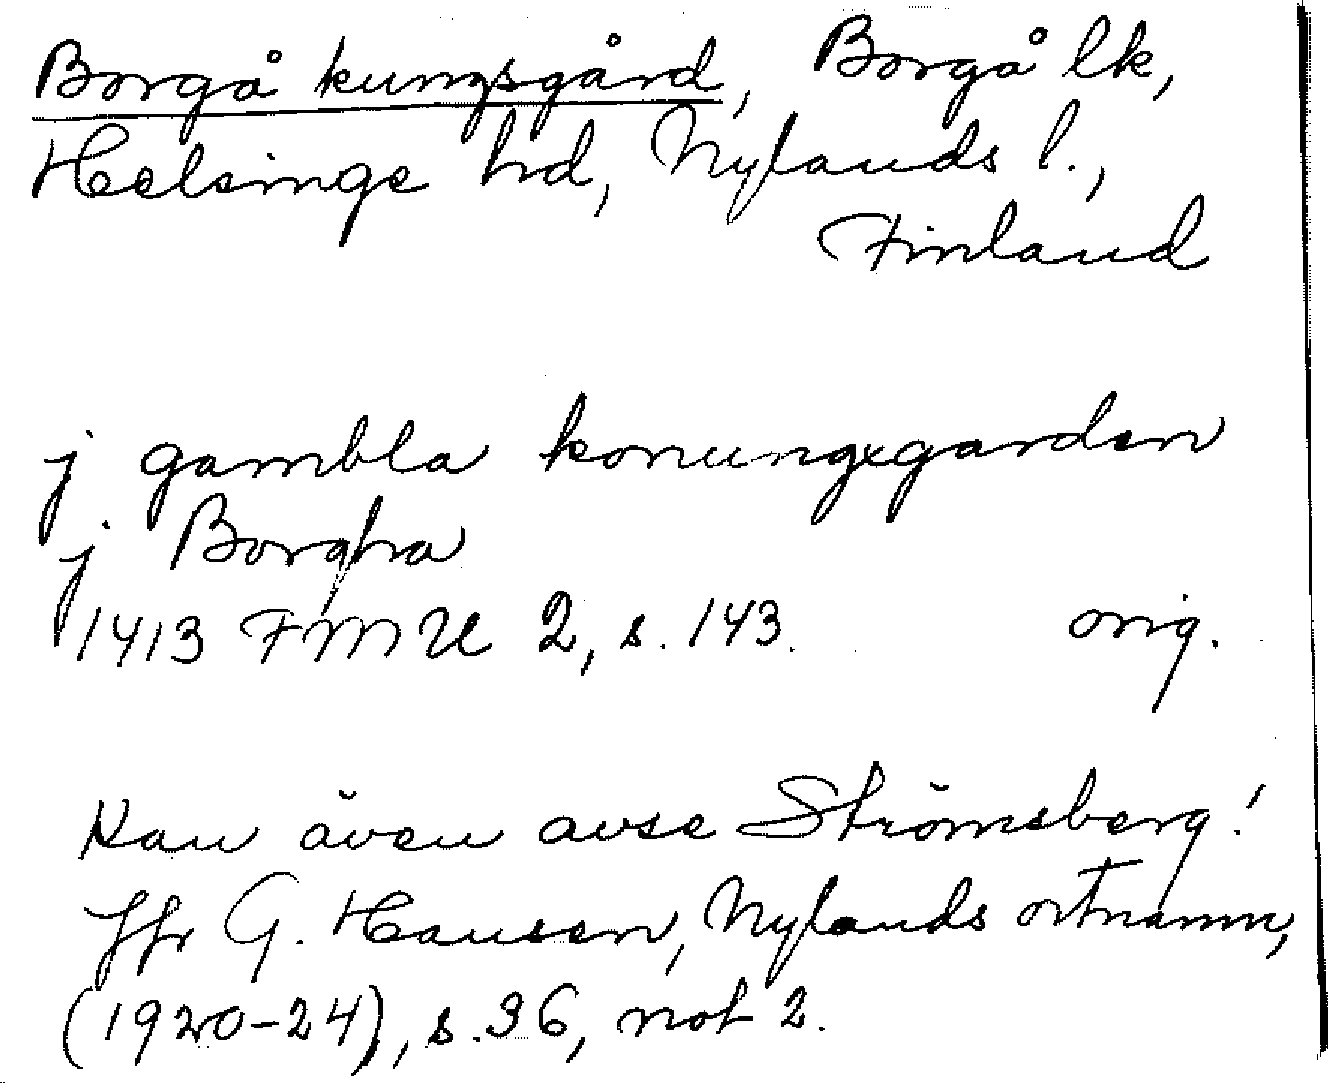 Borgå kungsgård, Borgå lk,
Helsinge hd, Nylands l.,
Finland
j gambla konungxgarden
j Borgha
1413 FMU 2, s. 143. orig.
Kan även avse Strömsberg!
Jfr G. Hausen, Nylands ortnamn,
(1920-24), s. 36, not 2.